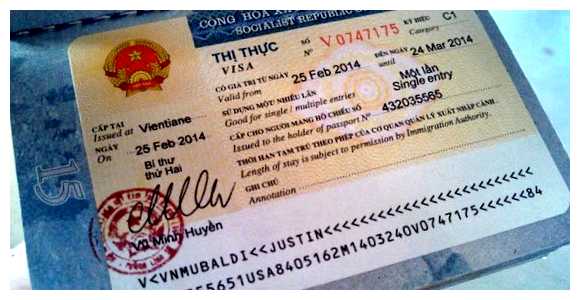 CỘNG HÒA
SOCIALIST REPUBLIC
THỊ THỰC SỐ KÝ HIỆU C1
VISA Nº V 0747175 Category
CÓ GIÁ TRỊ TỪ NGÀY 25 Feb 2014 ĐẾN NGÀY 24 Mar 2014
Valid from until
SỬ DỤNG MỘT/ NHIỀU LẦN Một lần
Good for single / multiple entries Single entry
CẤP TẠI
Issued at Vientiane
CẤP CHO NGƯỜI MANG HỘ CHIẾU SỐ 432035565
Issued to the holder of passport Nº
NGÀY
On 25 Feb 2014
THỜI HẠN TẠM TRÚ THEO PHÉP CỦA CƠ QUAN QUẢN LÝ XUẤT NHẬP CẢNH.
Length of stay is subject to permission by Immigration Authority.
Bí thư
thứ Hai
GHI CHÚ
Annotation
15
Vũ Minh Huyền
V<VNMUBALDI<<JUSTIN<<<<<<<<<<<<<<<<<<<<<
5651USA8405162M1403240V0747175<<<<<<84